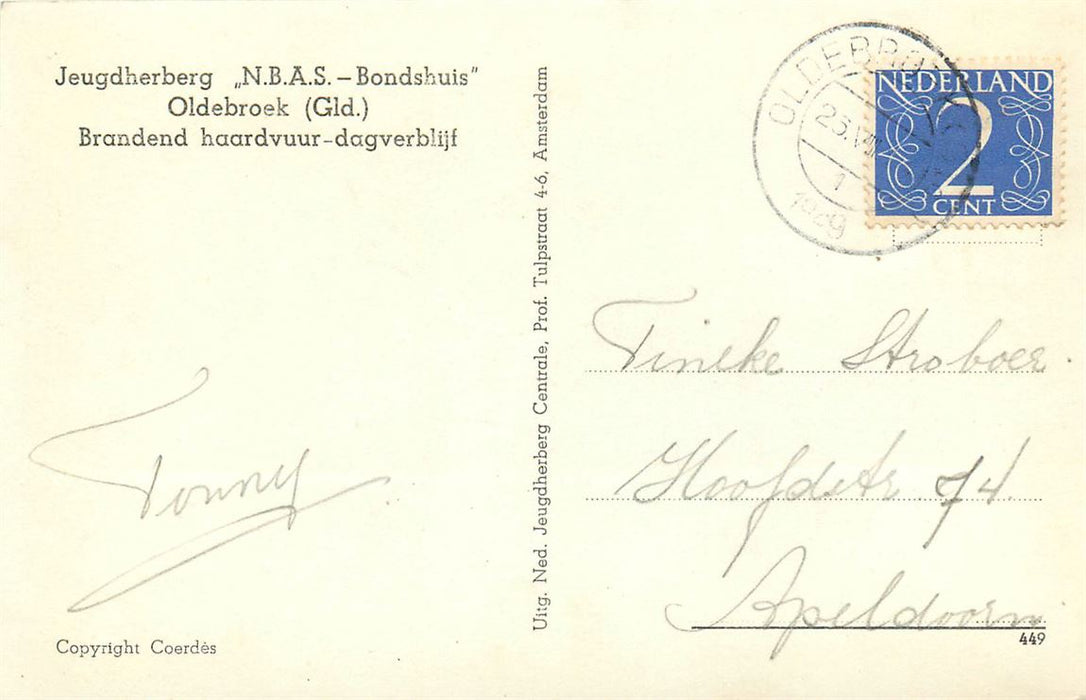 Jeugdherberg „N.B.A.S. – Bondshuis"
Oldebroek (Gld.)
Brandend haardvuur-dagverblijf
Tonny
Copyright Coerdès
Uitg. Ned. Jeugdherberg Centrale, Prof. Tulpstraat 4-6, Amsterdam
OLDEBROEK
1
NEDERLAND
2
CENT
Tineke Stroboer
Hoofdstr. 74.
Apeldoorn
449